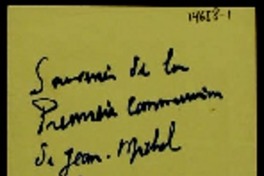 14618-1
Souvenir de la
Première Communion
de Jean-Michel